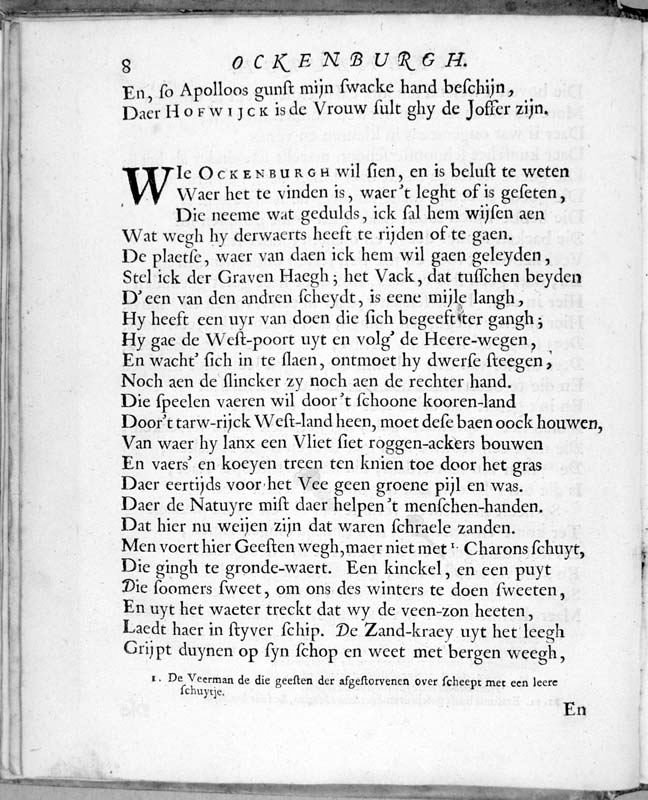 8 OCKENBURGH.
En, ſo Apolloos gunſt mijn ſwacke hand beſchijn,
Daer HOFWIJCK is de Vrouw ſult ghy de Joffer zijn.
WIe OCKENBURGH wil ſien, en is beluſt te weten
Waer het te vinden is, waer't leght of is geſeten,
Die neeme wat gedulds, ick ſal hem wijſen aen
Wat wegh hy derwaerts heeft te rijden of te gaen.
De plaetſe, waer van daen ick hem wil gaen geleyden,
Stel ick der Graven Haegh; het Vack, dat tuſſchen beyden
D'een van den andren ſcheydt, is eene mijle langh,
Hy heeft een uyr van doen die ſich begeeft ter gangh;
Hy gae de Weſt-poort uyt en volg' de Heere-wegen,
En wacht' ſich in te ſlaen, ontmoet hy dwerſe ſteegen,
Noch aen de ſlincker zy noch aen de rechter hand.
Die ſpeelen vaeren wil door't ſchoone kooren-land
Door't tarw-rijck Weſt-land heen, moet deſe baen oock houwen,
Van waer hy lanx een Vliet ſiet roggen-ackers bouwen
En vaers' en koeyen treen ten knien toe door het gras
Daer eertijds voor het Vee geen groene pijl en was.
Daer de Natuyre miſt daer helpen't menſchen-handen.
Dat hier nu weijen zijn dat waren ſchraele zanden.
Men voert hier Geeſten wegh, maer niet met 1. Charons ſchuyt,
Die gingh te gronde-waert. Een kinckel, en een puyt
Die ſoomers ſweet, om ons des winters te doen ſweeten,
En uyt het waeter treckt dat wy de veen-zon heeten,
Laedt haer in ſtyver ſchip. De Zand-kraey uyt het leegh
Grijpt duynen op ſyn ſchop en weet met bergen weegh,
1. De Veerman de die geeſten der afgeſtorvenen over ſcheept met een leere
ſchuytje.
En